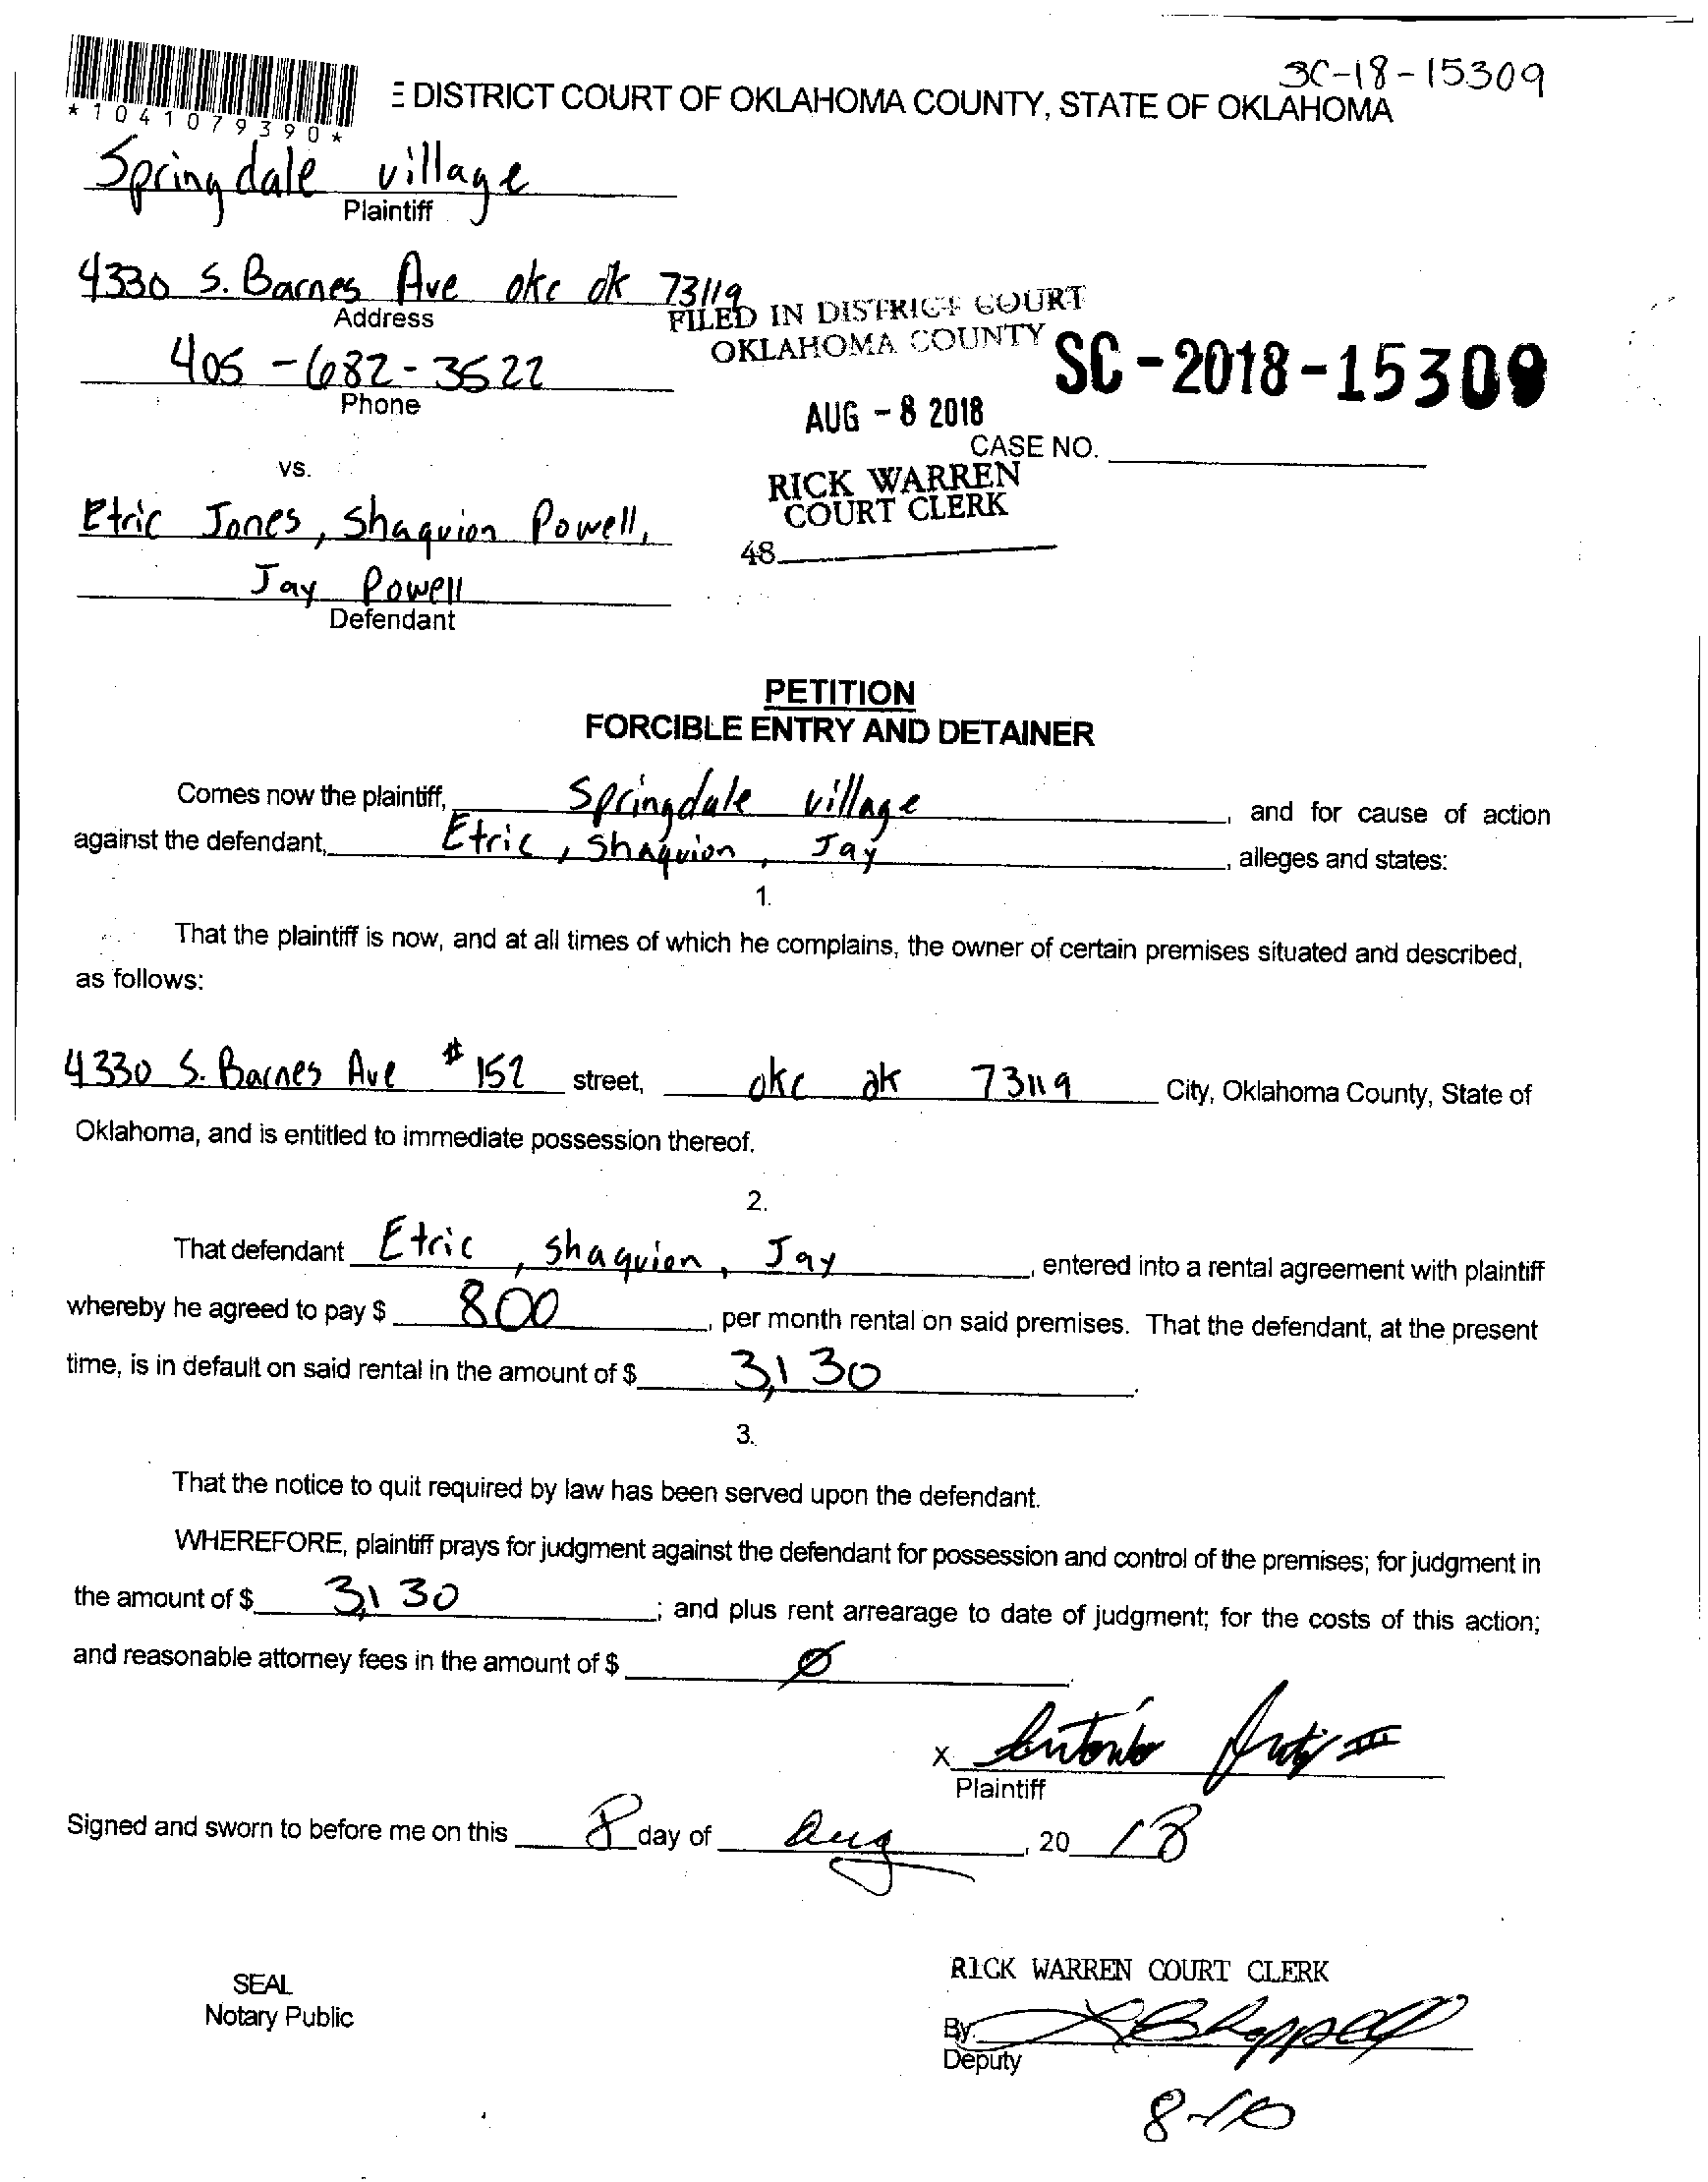 SC-18-15309
*1041079390*
E DISTRICT COURT OF OKLAHOMA COUNTY, STATE OF OKLAHOMA
Springdale village
Plaintiff
4330 S. Barnes Ave okc ok 73119
Address
FILED IN DISTRICT COURT
OKLAHOMA COUNTY
405-682-3522
Phone
SC-2018-15309
AUG - 8 2018
CASE NO.
vs.
RICK WARREN
COURT CLERK
48
Etric Jones, Shaquion Powell,
Jay Powell
Defendant
PETITION
FORCIBLE ENTRY AND DETAINER
Comes now the plaintiff, Springdale village, and for cause of action
against the defendant, Etric, Shaquion, Jay, alleges and states:
1.
That the plaintiff is now, and at all times of which he complains, the owner of certain premises situated and described,
as follows:
4330 S. Barnes Ave #152 street, okc ok 73119 City, Oklahoma County, State of
Oklahoma, and is entitled to immediate possession thereof.
2.
That defendant Etric, Shaquion, Jay, entered into a rental agreement with plaintiff
whereby he agreed to pay $ 800, per month rental on said premises. That the defendant, at the present
time, is in default on said rental in the amount of $ 3,130.
3.
That the notice to quit required by law has been served upon the defendant.
WHEREFORE, plaintiff prays for judgment against the defendant for possession and control of the premises; for judgment in
the amount of $ 3,130; and plus rent arrearage to date of judgment; for the costs of this action;
and reasonable attorney fees in the amount of $ Ø.
X Antonio
Plaintiff
Signed and sworn to before me on this 8 day of Aug, 20 18
SEAL
Notary Public
RICK WARREN COURT CLERK
By
Deputy